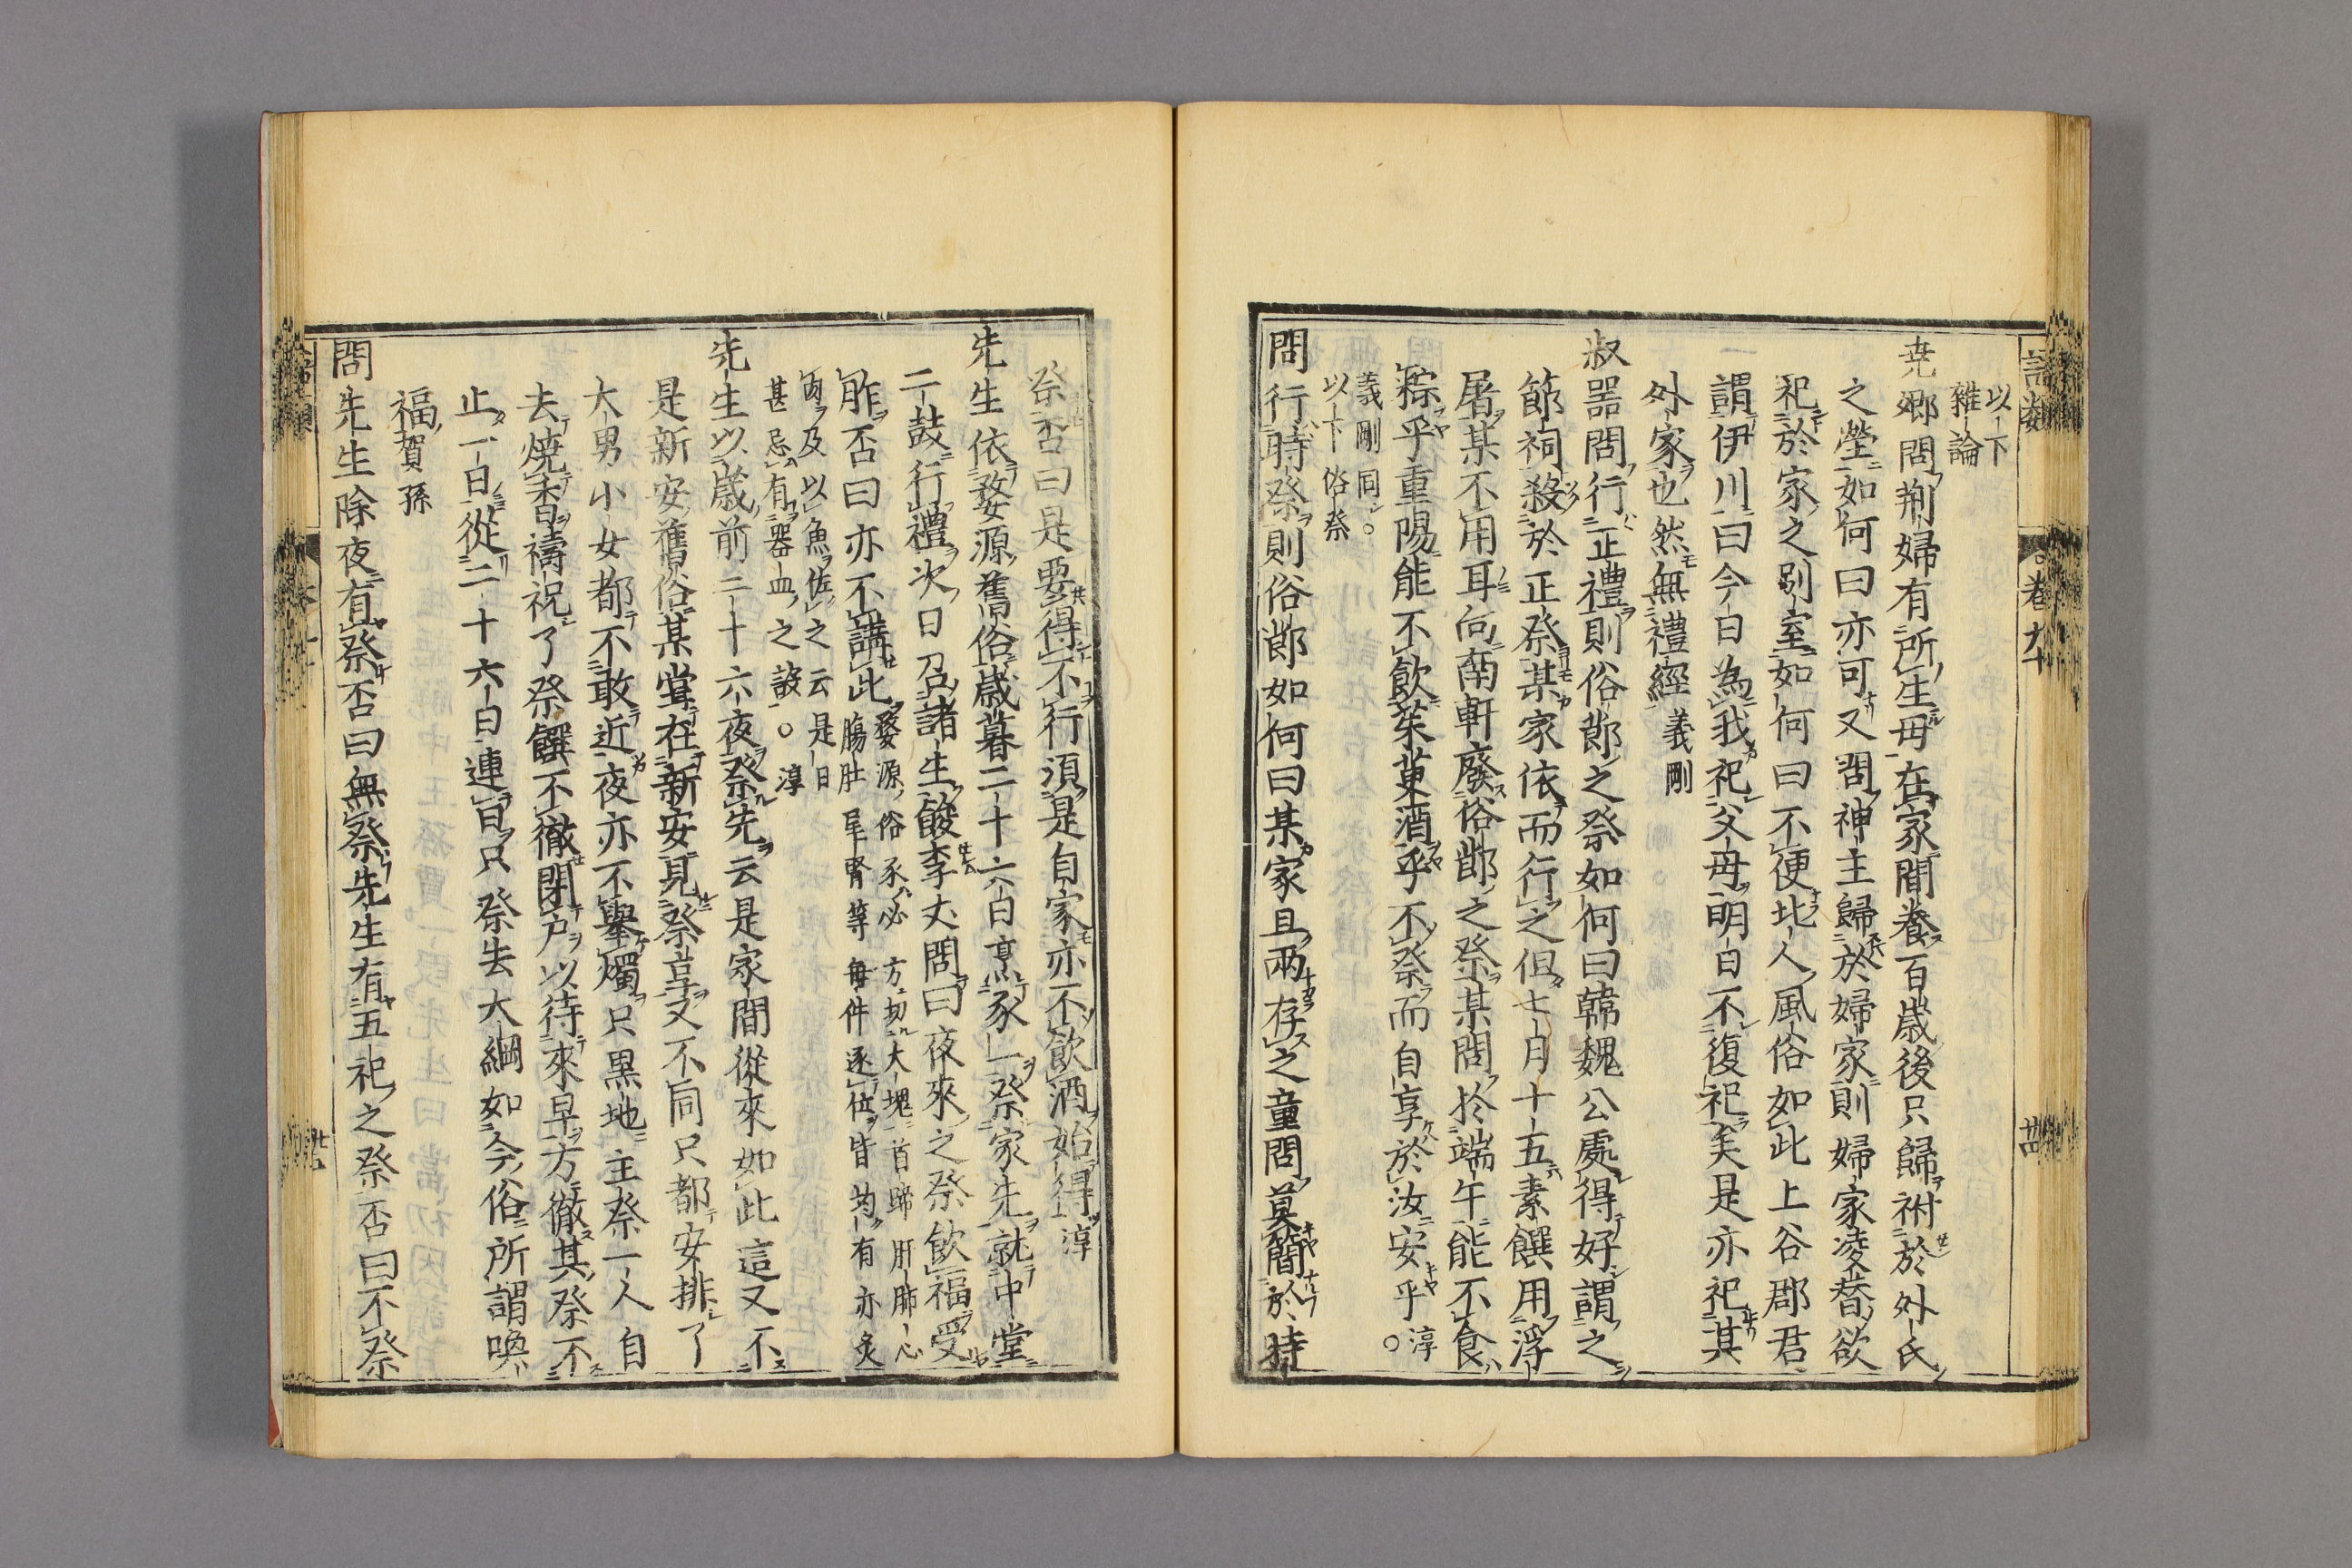 語類
卷九十
廿四
以下
雜論
堯卿問荆婦有所生母在家間養百歲後只歸祔於外氏
之塋如何曰亦可又問神主歸於婦家則婦家凌替欲
祀於家之別室如何曰不便北人風俗如此上谷郡君
謂伊川曰今日為我祀父母明日不復祀矣是亦祀其
外家也然無禮經義剛
叔器問行正禮則俗節之祭如何曰韓魏公處得好謂之
節祠殺於正祭某家依而行之但七月十五素饌用浮
屠某不用耳向南軒廢俗節之祭某問於端午能不食
粽乎重陽能不飲茱萸酒乎不祭而自享於汝安乎淳○
義剛同○
以下俗祭
問行時祭則俗節如何曰某家且兩存之童問莫簡於時
祭否曰是要得不行須是自家亦不飲酒始得淳
先生依婺源舊俗歲暮二十六日烹豕一祭家先就中堂
二鼓行禮次日召諸生餕李丈問曰夜來之祭飲福受
胙否曰亦不講此婺源俗豕必方切大塊首蹄肝肺心
腸肚尾腎等每件逐位皆均有亦炙
肉及以魚佐之云是日
甚忌有器皿之設○淳
先生以歲前二十六夜祭先云是家間從來如此這又不
是新安舊俗某嘗在新安見祭享又不同只都安排了
大男小女都不敢近夜亦不舉燭只黑地主祭一人自
去燒香禱祝了祭饌不徹閉户以待來早方徹其祭不
止一日從二十六日連日只祭去大綱如今俗所謂喚
福賀孫
問先生除夜有祭否曰無祭先生有五祀之祭否曰不祭